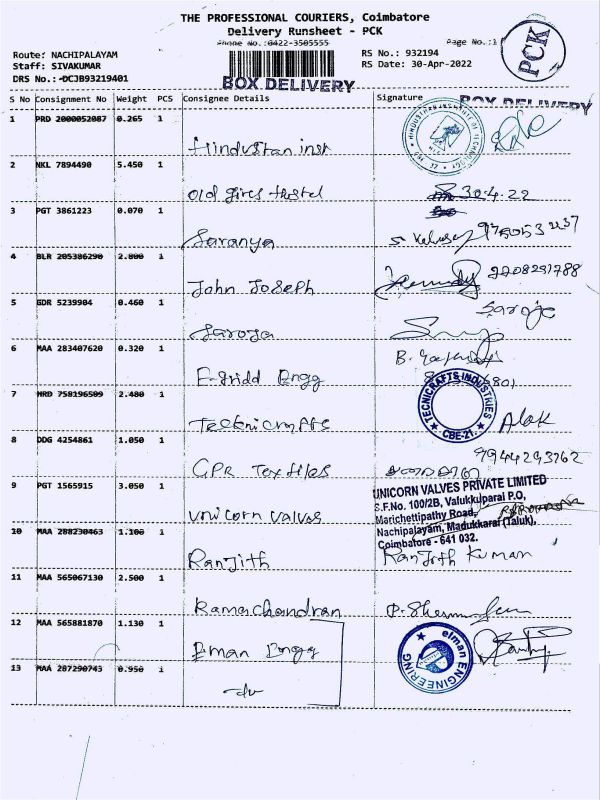 THE PROFESSIONAL COURIERS, Coimbatore
Delivery Runsheet - PCK
Phone No.:0422-3505555
Page No.:1
PCK
Route: NACHIPALAYAM
RS No.: 932194
Staff: SIVAKUMAR
RS Date: 30-Apr-2022
DRS No.:-DCJB93219401
BOX DELIVERY
S No Consignment No Weight PCS Consignee Details Signature
BOX DELIVERY
1 PRD 2000052087 0.265 1
Hindustan inst
2 NKL 7894490 5.450 1
Old girls Hostel 30.4.22
3 PGT 3861223 0.070 1
Saranya
4 BLR 205386290 2.800 1
John Joseph 2208291788
5 GDR 5239904 0.460 1
Saroja
Saroja
6 MAA 283407620 0.320 1
E-gridd Engg
7 HRD 758196509 2.480 1
Tecknicrafts
TECNICRAFTS INDUSTRIES
CBE-21.
Alok
8 DDG 4254861 1.050 1
GPR Textiles
9944293762
9 PGT 1565915 3.050 1
Unicorn valvas
UNICORN VALVES PRIVATE LIMITED
S.F.No. 100/2B, Valukkuparai P.O,
Marichettipathy Road,
Nachipalayam, Madukkarai (Taluk),
Coimbatore - 641 032.
10 MAA 288230463 1.100 1
Ranjith Ranjith Kumar
11 MAA 565067130 2.500 1
Ramachandran
12 MAA 565881870 1.130 1
Elman Engg
elman ENGINEERING
13 MAA 287290743 0.950 1